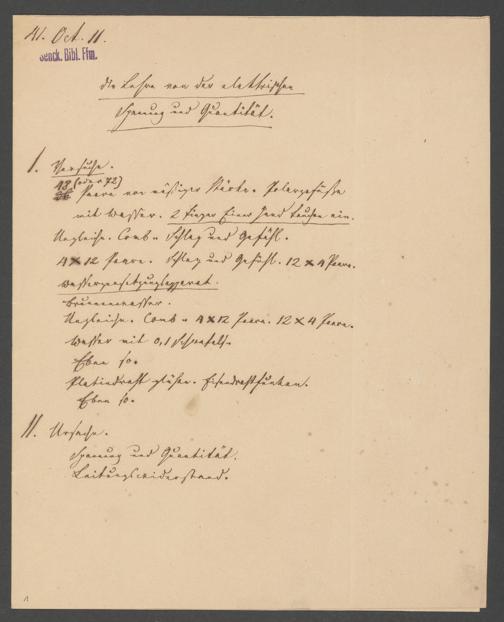 41. Oct. 11.
Senck. Bibl. Ffm.
Die Lehre von der elektrischen
Spannung und Quantität.
I. Versuche.
48 (oder 72)
Paare von mäßiger Stärke. Polargefäße
mit Wasser. 2 Finger Einer Hand tauchen ein.
Ungleiche. Comb. Schlag und Gefühl.
4 x 12 Paare. Schlag und Gefühl. 12 x 4 Paare.
Wasserzersetzungsapparat.
Brunnenwasser.
Ungleiche. Comb. 4 x 12 Paare. 12 x 4 Paare.
Wasser mit 0,1 Schwefels.
Eben so.
Platindraht glühen. Eisendrahtfunken.
Eben so.
II. Ursache.
Spannung und Quantität.
Leitungswiderstand.